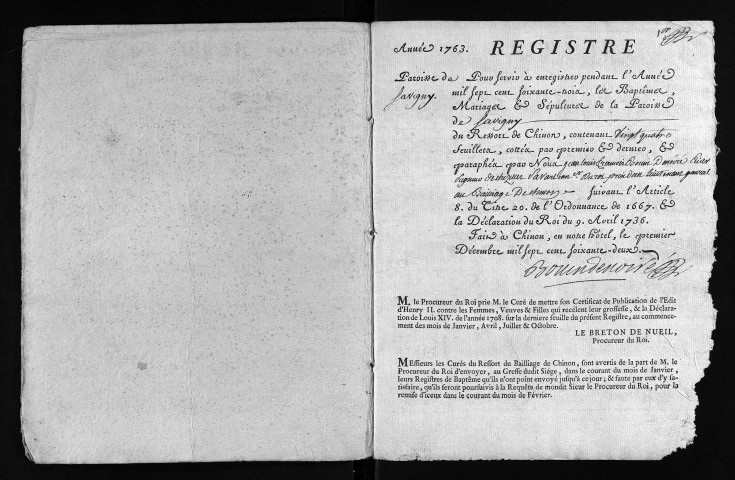 1er
Année 1763. REGISTRE
Paroisse de Savigny.
Pour servir à enregistrer pendant l'Année
mil sept cent soixante-trois, les Baptêmes,
Mariages & Sépultures de la Paroisse
de Savigny
du Ressort de Chinon, contenant vingt quatre
feuillets, cottés par premier & dernier, &
paraphés par Nous Jean louis François Bouin Denoiré
Lieutenant general
au Bailliage de Chinon suivant l'Article
8. du Titre 20. de l'Ordonnance de 1667. &
la Déclaration du Roi du 9. Avril 1736.
Fait à Chinon, en notre hôtel, le premier
Décembre mil sept cent soixante-deux.
Bouindenoiré
M. le Procureur du Roi prie M. le Curé de mettre son Certificat de Publication de l'Edit
d'Henry II. contre les Femmes, Veuves & Filles qui recélent leur grossesse, & la Déclara-
tion de Louis XIV. de l'année 1708. sur la derniere feuille du présent Registre, au commence-
ment des mois de Janvier, Avril, Juillet & Octobre.
LE BRETON DE NUEIL,
Procureur du Roi.
MEssieurs les Curés du Ressort du Bailliage de Chinon, sont avertis de la part de M. le
Procureur du Roi d'envoyer, au Greffe dudit Siége, dans le courant du mois de Janvier,
leurs Registres de Baptême qu'ils n'ont point envoyé jusqu'à ce jour; & faute par eux d'y sa-
tisfaire, qu'ils seront poursuivis à la Requête de mondit Sieur le Procureur du Roi, pour la
remise d'iceux dans le courant du mois de Février.